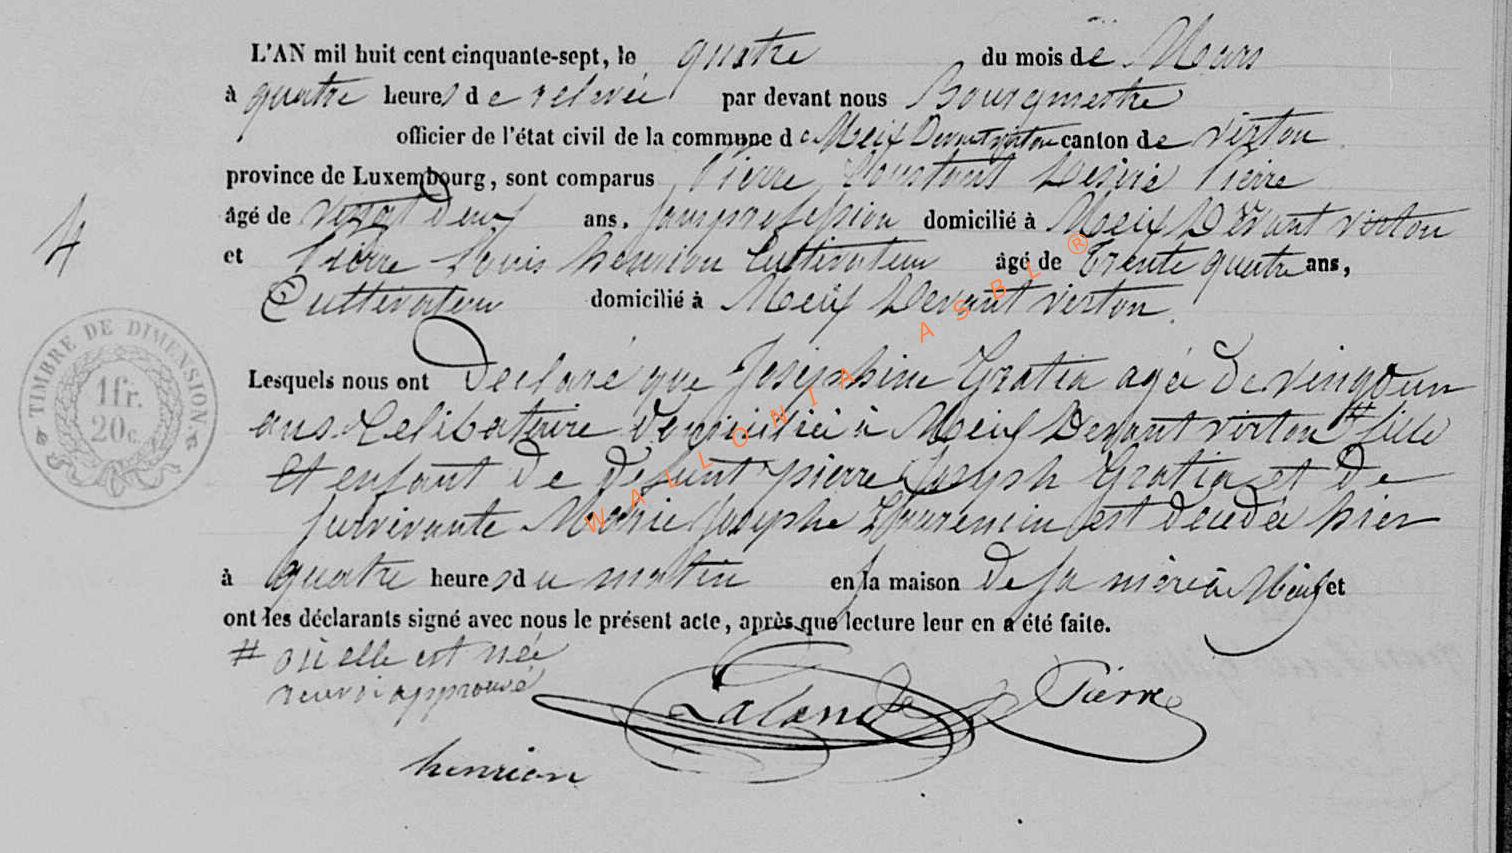 L'AN mil huit cent cinquante-sept, le quatre du mois de Mars
à quatre heures de relevée par devant nous Bourgmestre
officier de l'état civil de la commune de Meix Devant virton canton de virton
province de Luxembourg, sont comparus Pierre Constant Désiré Pierre
âgé de vingt deux ans, sans profession domicilié à Meix Devant virton
et Pierre Louis henrion Cultivateur âgé de Trente quatre ans,
Cultivateur domicilié à Meix Devant virton.
4
TIMBRE DE DIMENSION.
1 fr.
20 c.
Lesquels nous ont Declaré que Joséphine Gratia agée de vingt un
ans Celibataire domiciliée à Meix Devant virton # fille
et enfant de defunt pierre Joseph Gratia et de
survivante Marie Josephe Laurencin est decedée hier
à quatre heures du matin en sa maison de sa mère à Meix et
ont les déclarants signé avec nous le présent acte, après que lecture leur en a été faite.
# où elle est née
renvoi approuvé
Pierre
henrion
WALLONIA ASBL ®